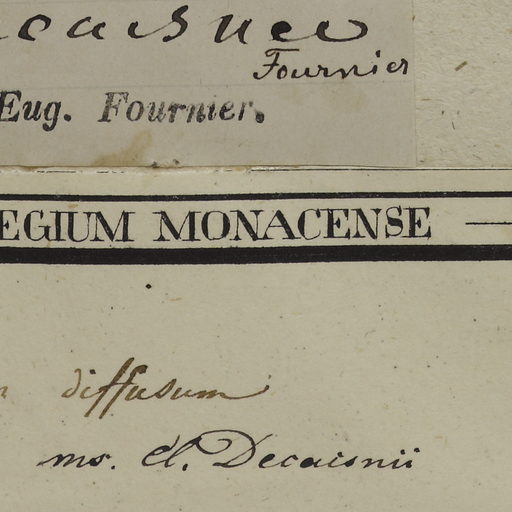 Fournier
Eug. Fournier.
EGIUM MONACENSE
diffusum
ms. cl. Decaisnii